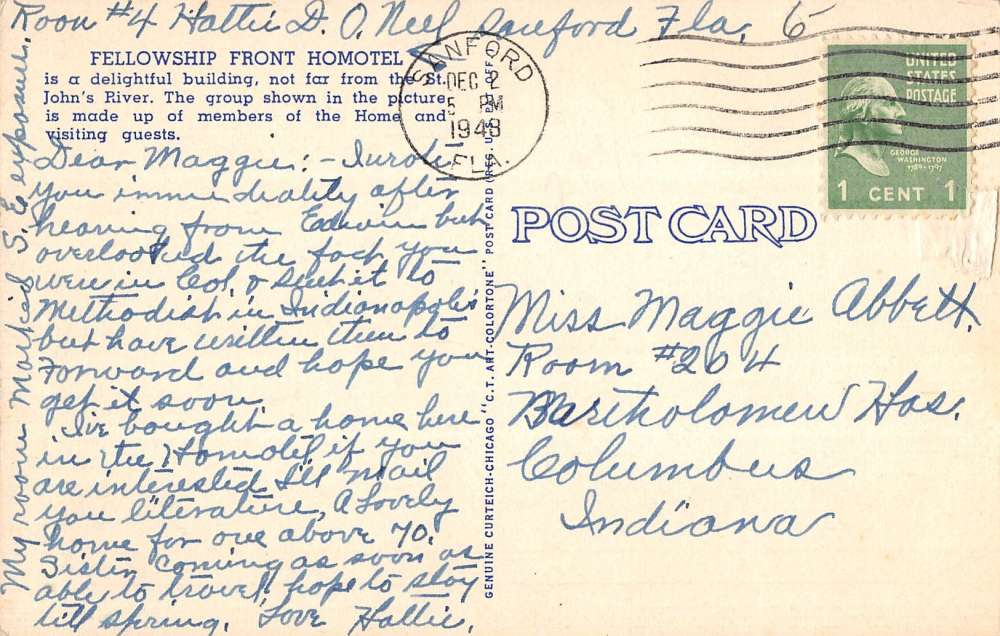 Room #4 Hattie D. O. Neel Sanford Fla. 6
FELLOWSHIP FRONT HOMOTEL
is a delightful building, not far from the St.
John's River. The group shown in the picture
is made up of members of the Home and
visiting guests.
SANFORD
DEC 2
5 PM
1948
FLA.
UNITED
STATES
POSTAGE
GEORGE
WASHINGTON
1789-1797
1 CENT 1
Dear Maggie:- I wrote
you immediality after
hearing from Edwin but
overlooked the fact you
were in Col. & sent it to
Methodist in Indianapolis
but have written them to
Forward and hope you
get it soon.
I've bought a home here
in the Homotel if you
are interested I'll mail
you literature, A Lovely
home for one above 70.
Sister coming as soon as
able to travel, hope to stay
till spring. Love Hattie.
My room Marked S. E exposure.
GENUINE CURTEICH-CHICAGO "C.T. ART-COLORTONE" POST CARD (REG. U.S. PAT. OFF.)
POST CARD
Miss Maggie Abbett.
Room #204
Bartholomew Hos.
Columbus
Indiana